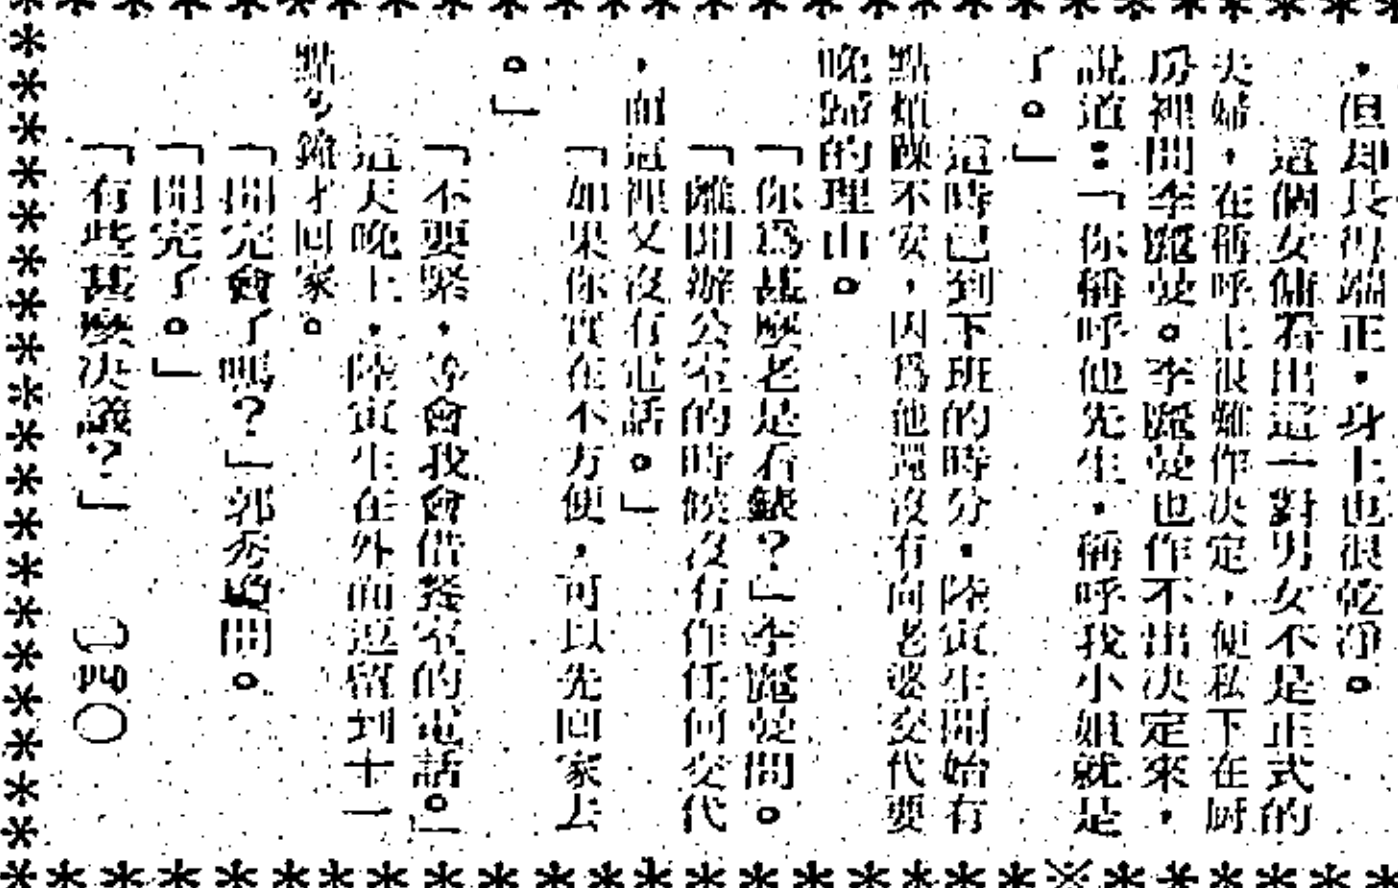 ，但却長得端正，身上也很乾淨。
這個女傭看出這一對男女不是正式的
夫婦，在稱呼上很難作决定，便私下在厨
房裡問李麗曼。李麗曼也作不出决定來，
說道：「你稱呼他先生，稱呼我小姐就是
了。」
這時已到下班的時分，陸寅生開始有
點煩躁不安，因爲他還沒有向老婆交代要
晚歸的理由。
「你爲甚麼老是看錶？」李麗曼問。
「離開辦公室的時候沒有作任何交代
，而這裡又沒有電話。」
「如果你實在不方便，可以先回家去
。」
「不要緊，等會我會借餐室的電話。」
這天晚上，陸寅生在外面逗留到十一
點多鐘才回家。
「開完會了嗎？」郭秀問。
「開完了。」
「有些甚麼决議？」　（一四〇）